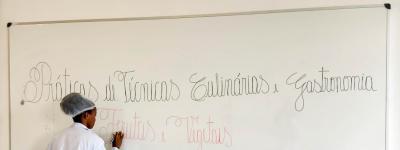 Práticas de Técnicas Culinárias e Gastronomia
Frutas e Vegetais